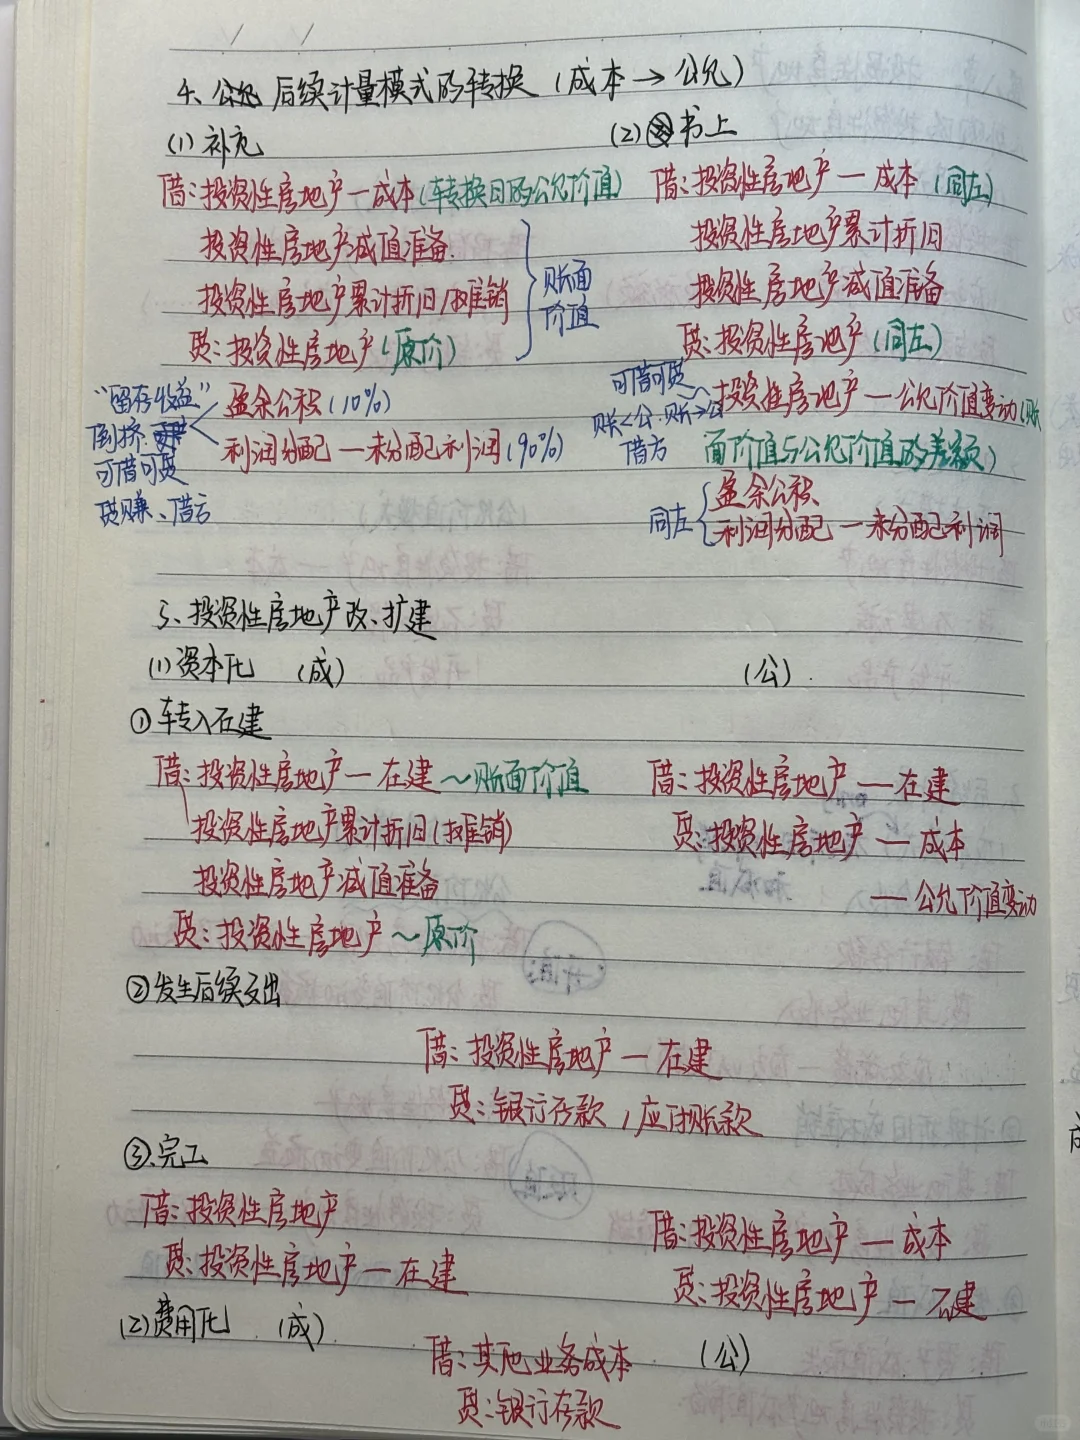 4、公允后续计量模式的转换（成本→公允）
(1)补充
(2)书上
借：投资性房地产—成本（转换日的公允价值）
投资性房地产减值准备
投资性房地产累计折旧/摊销
贷：投资性房地产（原价）
账面
价值
"留存收益"
倒挤
可借可贷
贷赚、借亏
盈余公积(10%)
利润分配—未分配利润(90%)
借：投资性房地产—成本（同左）
投资性房地产累计折旧
投资性房地产减值准备
贷：投资性房地产（同左）
可借可贷
账<公.账>公
借方
投资性房地产—公允价值变动（账
面价值与公允价值的差额）
同左
盈余公积
利润分配—未分配利润
5、投资性房地产改、扩建
(1)资本化 （成） （公）.
①转入在建
借：投资性房地产—在建~账面价值
投资性房地产累计折旧(摊销)
投资性房地产减值准备
贷：投资性房地产~原价
借：投资性房地产—在建
贷：投资性房地产—成本
—公允价值变动
②发生后续支出
借：投资性房地产—在建
贷：银行存款/应付账款
③.完工
借：投资性房地产
贷：投资性房地产—在建
借：投资性房地产—成本
贷：投资性房地产—在建
(2)费用化 （成） （公）
借：其他业务成本
贷：银行存款